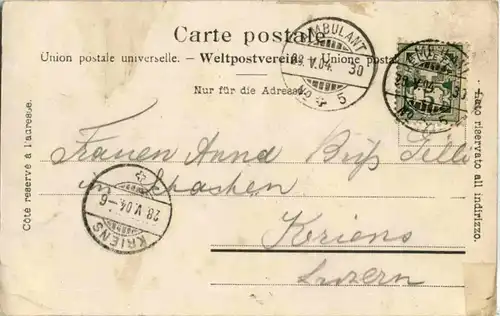 Carte postale.
Union postale universelle. — Weltpostverein. — Unione postale
Nur für die Adresse
Côté réservé à l'adresse.
Lato riservato all indirizzo.
AMBULANT
28.V.04. 30
5
Frauen Anna
Schachen
Kriens
Luzern
KRIENS
28.V.04.-6